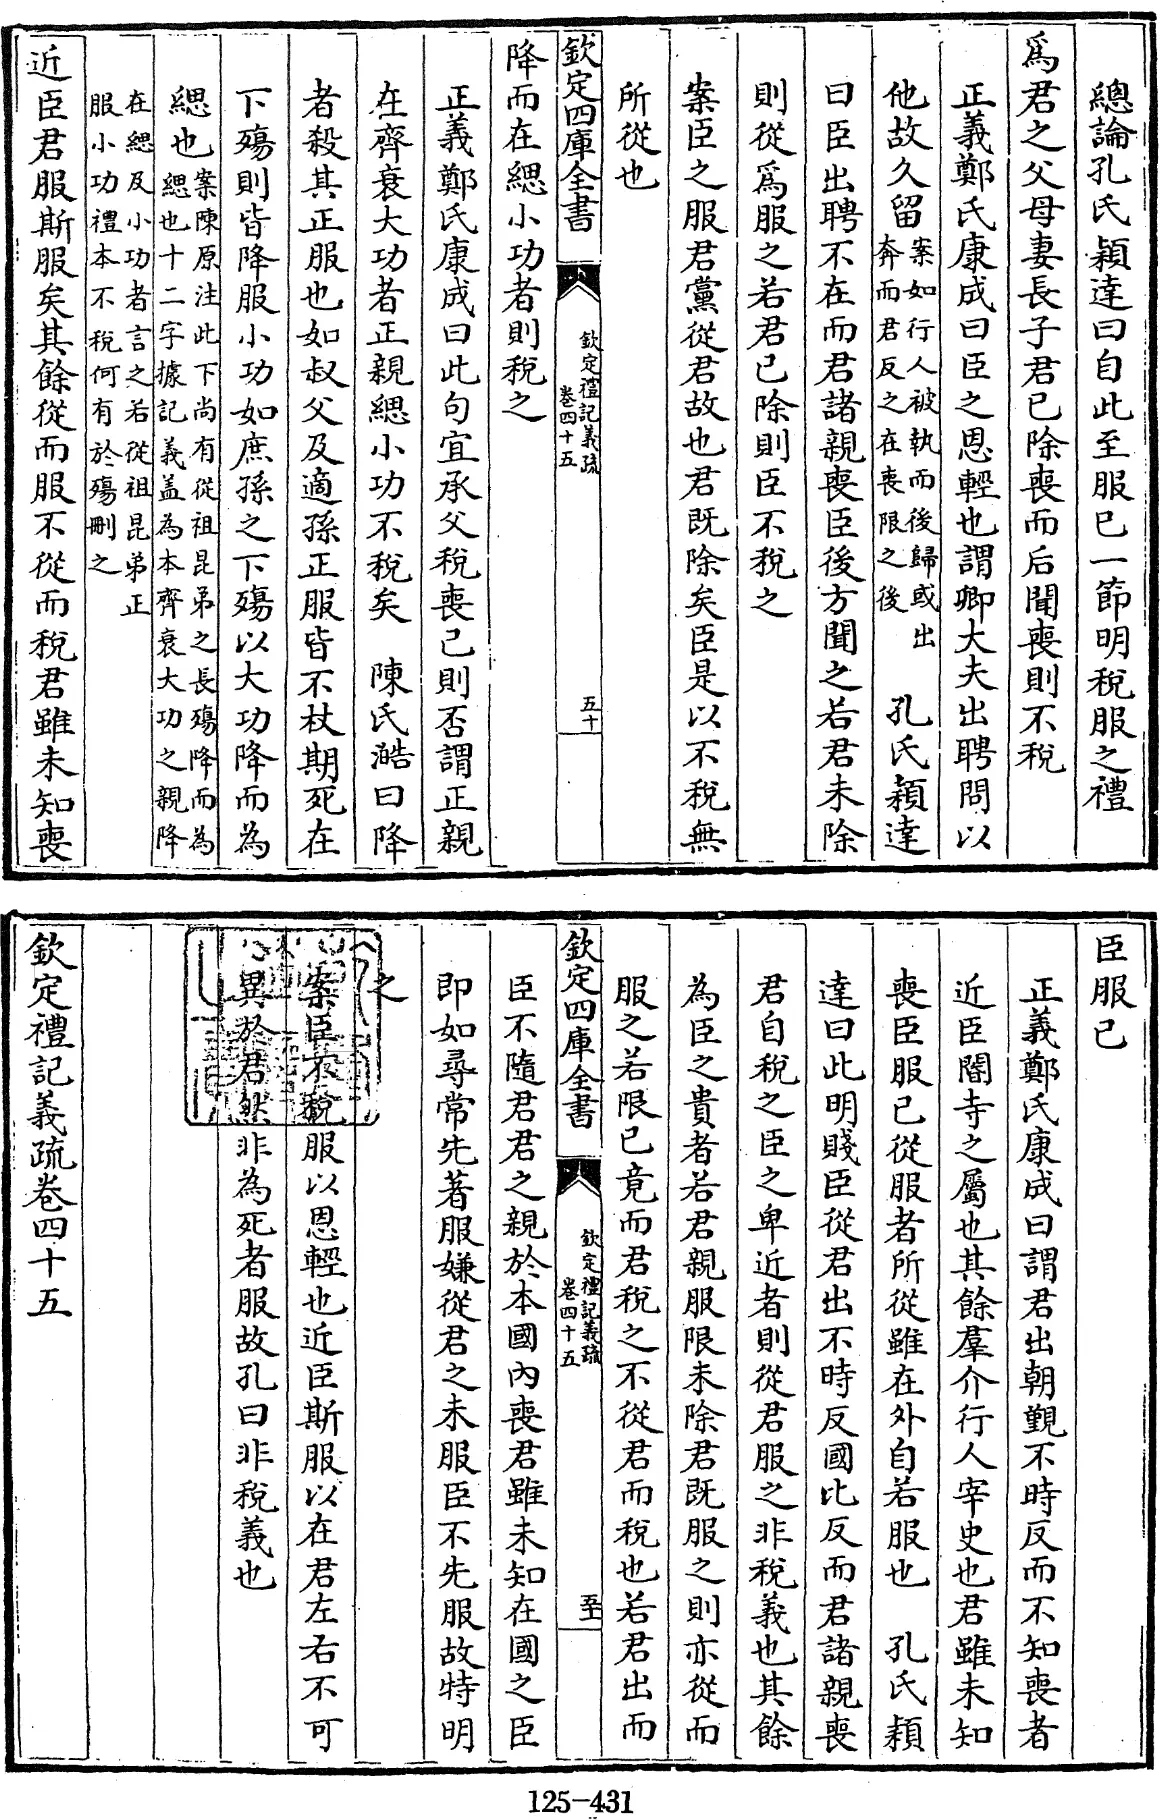 總論孔氏穎達曰自此至服已一節明稅服之禮
為君之父母妻長子君已除喪而后聞喪則不稅
正義鄭氏康成曰臣之恩輕也謂卿大夫出聘問以
他故久留案如行人被執而後歸或出奔而君反之在喪限之後 孔氏穎達
曰臣出聘不在而君諸親喪臣後方聞之若君未除
則從為服之若君已除則臣不稅之
案臣之服君黨從君故也君既除矣臣是以不稅無
所從也
欽定四庫全書 欽定禮記義疏 卷四十五 五十
降而在緦小功者則稅之
正義鄭氏康成曰此句宜承父稅喪己則否謂正親
在齊衰大功者正親緦小功不稅矣 陳氏澔曰降
者殺其正服也如叔父及適孫正服皆不杖期死在
下殤則皆降服小功如庶孫之下殤以大功降而為
緦也案陳原注此下尚有從祖昆弟之長殤降而為緦也十二字據記義蓋為本齊衰大功之親降
在緦及小功者言之若從祖昆弟正服小功禮本不稅何有於殤刪之
近臣君服斯服矣其餘從而服不從而稅君雖未知喪
臣服已
正義鄭氏康成曰謂君出朝覲不時反而不知喪者
近臣閽寺之屬也其餘羣介行人宰史也君雖未知
喪臣服已從服者所從雖在外自若服也 孔氏穎
達曰此明賤臣從君出不時反國比反而君諸親喪
君自稅之臣之卑近者則從君服之非稅義也其餘
為臣之貴者若君親服限未除君既服之則亦從而
服之若限已竟而君稅之不從君而稅也若君出而
欽定四庫全書 欽定禮記義疏 卷四十五
臣不隨君君之親於本國內喪君雖未知在國之臣
即如尋常先著服嫌從君之未服臣不先服故特明
之
案臣不稅服以恩輕也近臣斯服以在君左右不可
異於君然非為死者服故孔曰非稅義也
欽定禮記義疏卷四十五
125-431